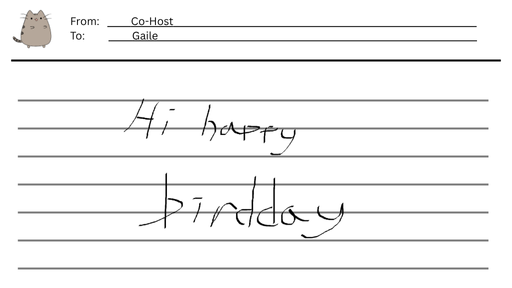 From: Co-Host
To: Gaile
Hi happy
birdday